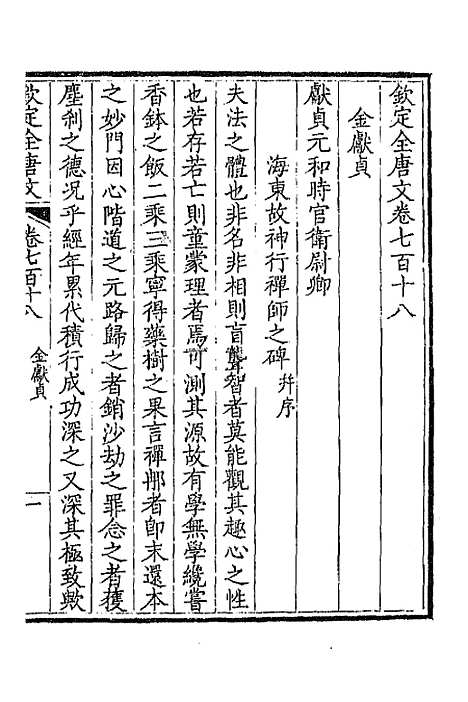 欽定全唐文卷七百十八
金獻貞
獻貞元和時官衛尉卿
海東故神行禪師之碑并序
夫法之體也非名非相則盲聾智者莫能觀其趣心之性
也若存若亡則童蒙理者焉可測其源故有學無學纔嘗
香鉢之飯二乘三乘寧得藥樹之果言禪那者卽末還本
之妙門因心階道之元路歸之者銷沙劫之罪念之者獲
塵刹之德況乎經年累代積行成功深之又深其極致歟
欽定全唐文 卷七百十八 金獻貞 一